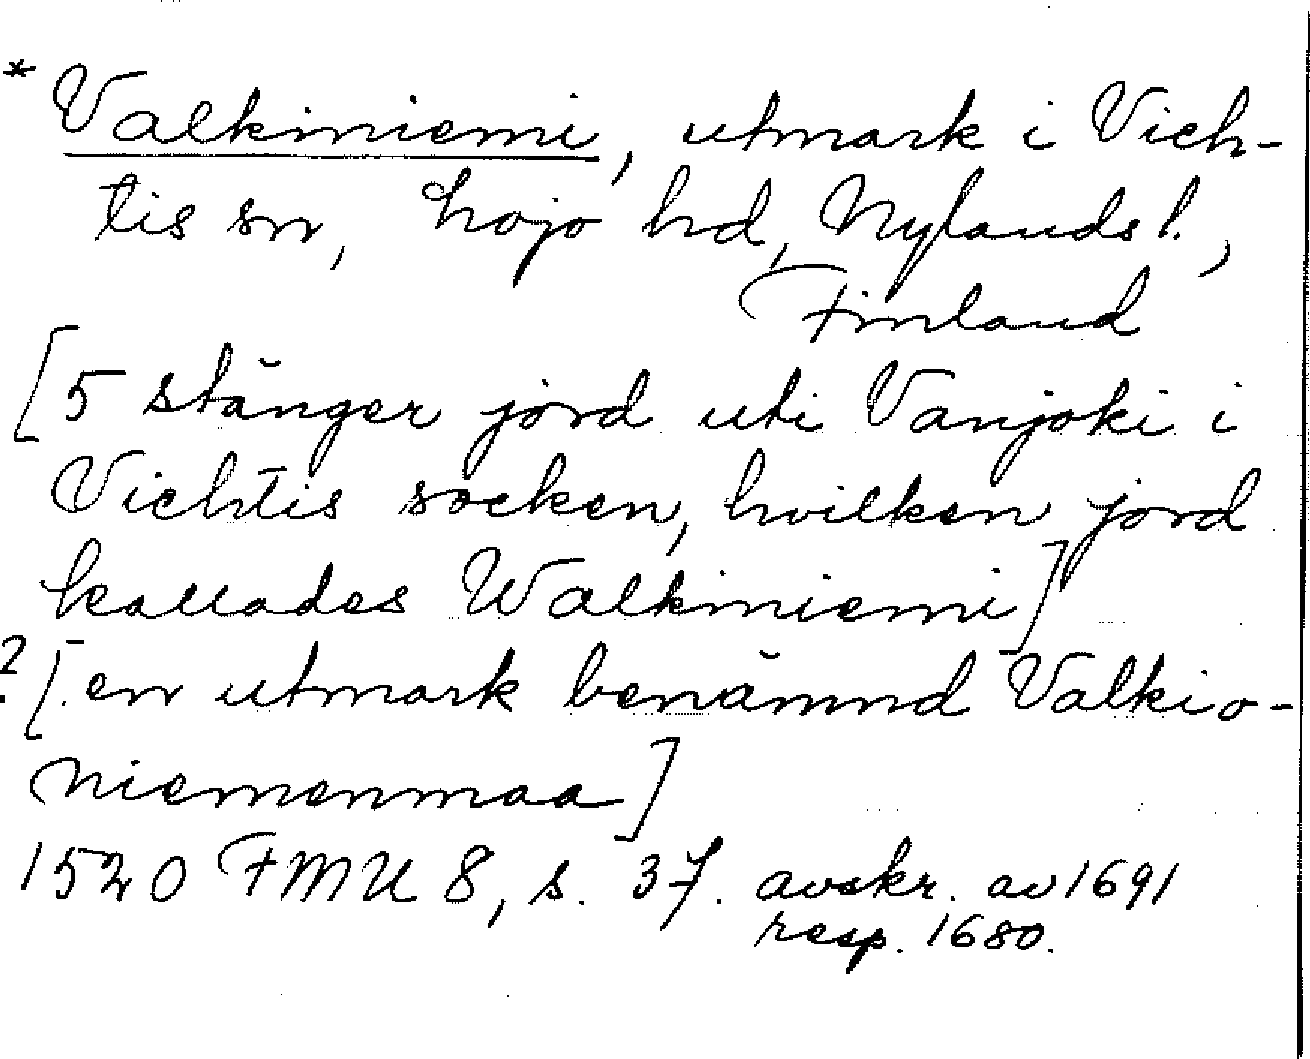 * Valkiniemi, utmark i Vich-
tis sn, Lojo hd, Nylands l.,
Finland
[5 stänger jord uti Vanjoki i
Vichtis socken, hvilken jord
kallades Walkiniemi]
? [en utmark benämnd Valkio-
niemenmaa]
1520 FMU 8, s. 37. avskr. av 1691
resp. 1680.